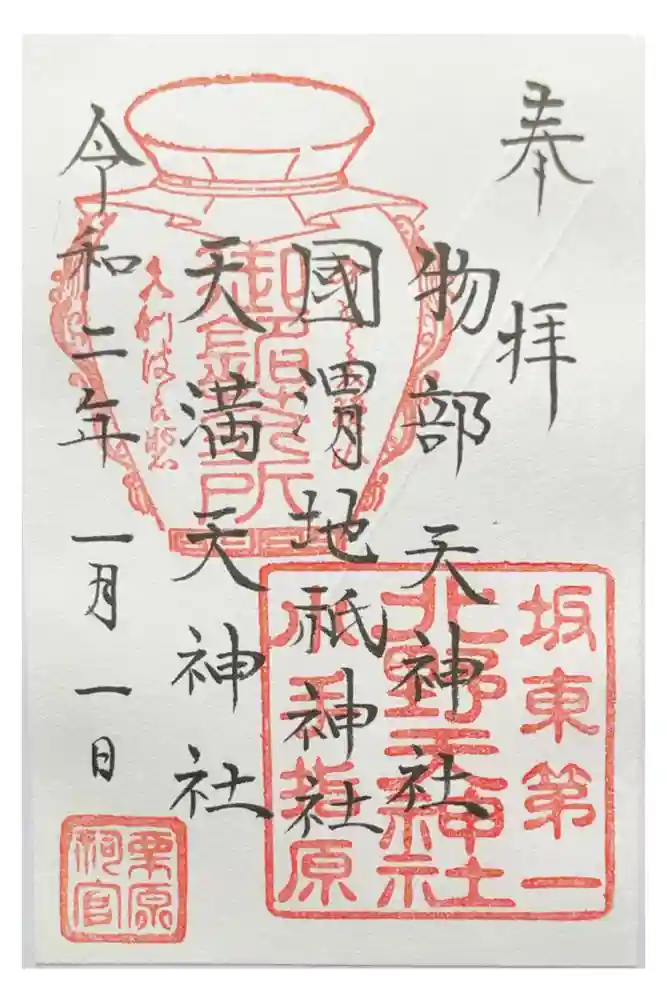 奉拝
物部天神社
國渭地祇神社
天満天神社
令和二年一月一日
坂東第一
北野天神社
武州指原
御詔宣所
栗原
祠官